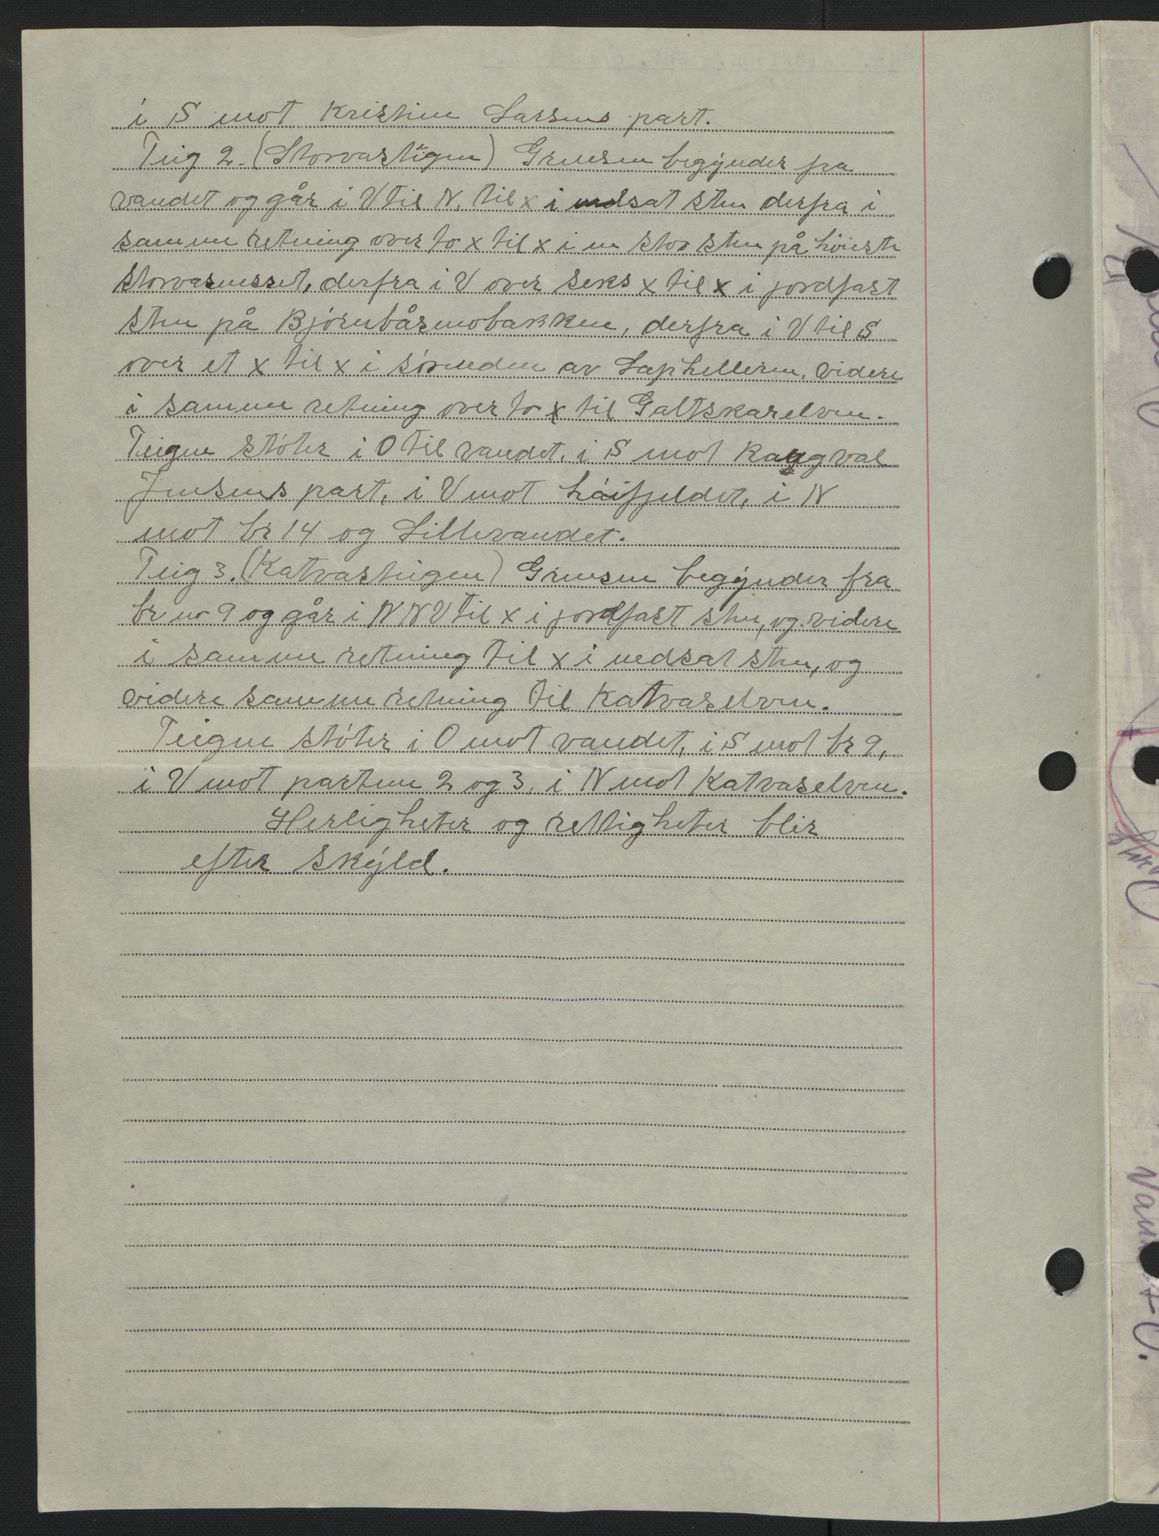 i S mot Kristine Larsens part.
Teig 2. (Storvasteigen) Grensen begynder fra
vandet og går i V til N. til x i nedsat sten derfra i
samme retning over to x til x i en stor sten på høieste
Storvasnesset, derfra i V over seks x til x i jordfast
sten på Bjørnbåsmobakken, derfra i V til S
over et x til x i søreneden av Laphelleren, videre
i samme retning over to x til Galtskarelven.
Teigen støter i O til vandet, i S mot Rangval
Jensens part, i V mot håifjeldet, i N
mot br 14 og Lillevandet.
Teig 3. (Katvasteigen) Grensen begynder fra
br no 9 og går i N N V til x i jordfast sten, og videre
i samme retning til x i nedsat sten, og
videre samme retning til Katvaselven.
Teigen støter i O mot vandet, i S mot br 9,
i V mot partene 2 og 3, i N mot Katvaselven.
Herligheter og rettigheter blir
efter skyld.